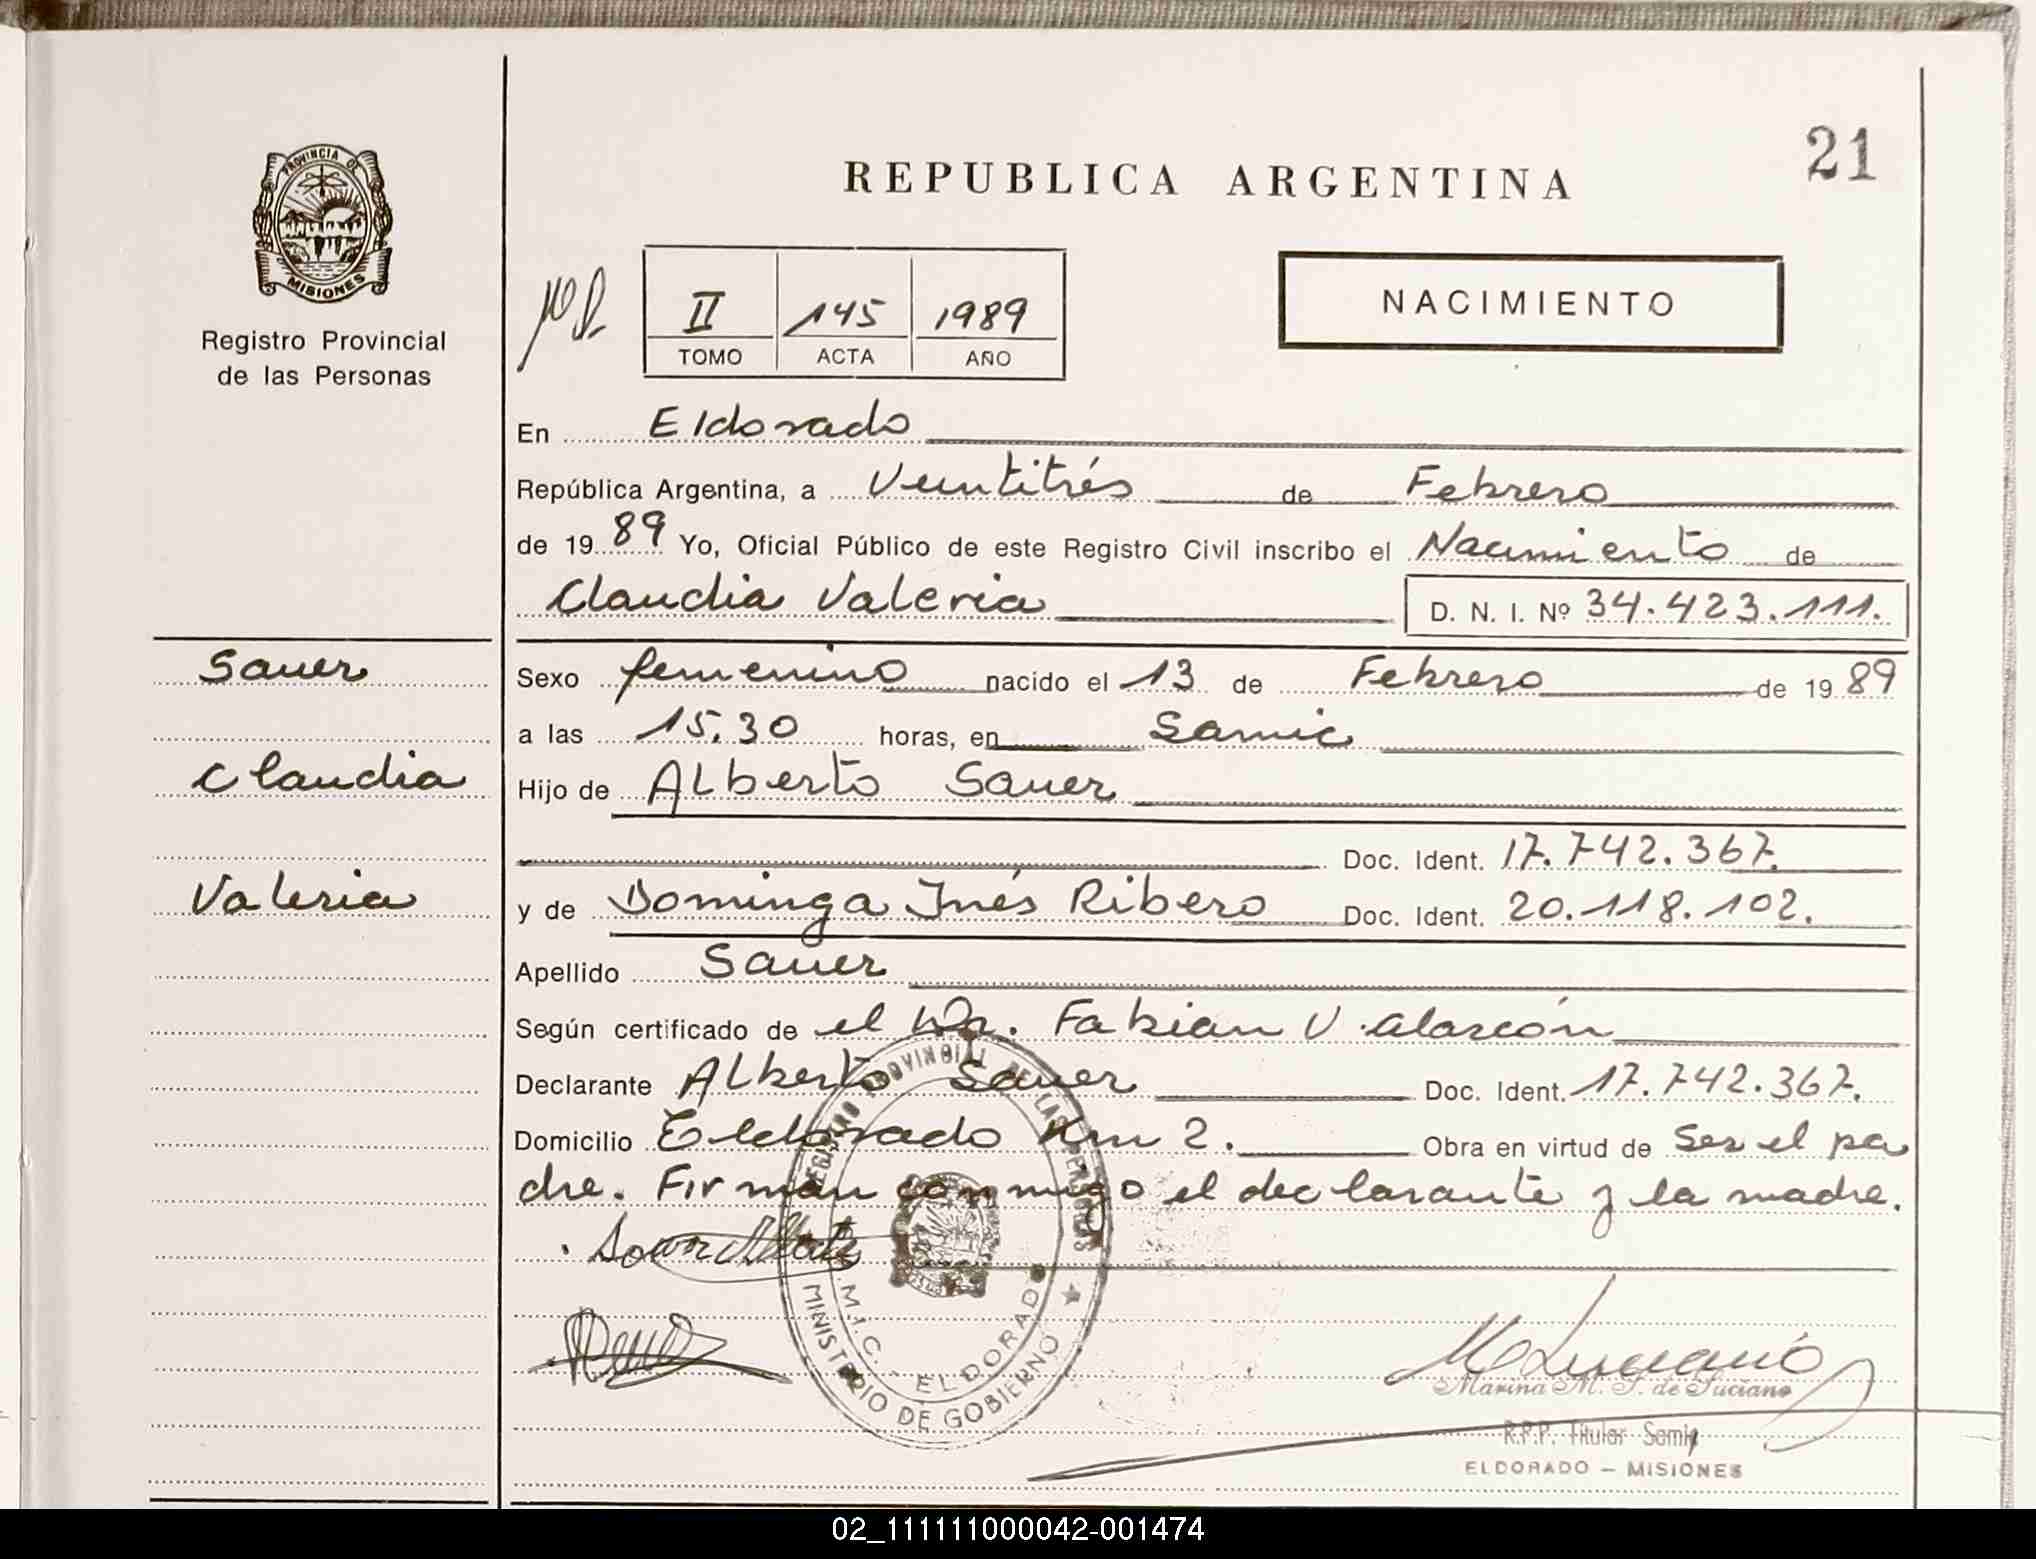 21
REPUBLICA ARGENTINA
PROVINCIA DE
MISIONES
Registro Provincial
de las Personas
II 145 1989
TOMO ACTA AÑO
NACIMIENTO
En Eldorado
República Argentina, a Veintitrés de Febrero
de 1989 Yo, Oficial Público de este Registro Civil inscribo el Nacimiento de
Claudia Valeria D. N. I. Nº 34.423.111.
Sauer
Claudia
Valeria
Sexo femenino nacido el 13 de Febrero de 1989
a las 15.30 horas, en Samic
Hijo de Alberto Sauer
Doc. Ident. 17.742.367.
y de Dominga Inés Ribero Doc. Ident. 20.118.102.
Apellido Sauer
Según certificado de el Dr. Fabian V. Alarcón
Declarante Alberto Sauer Doc. Ident. 17.742.367.
Domicilio Eldorado Km 2. Obra en virtud de Ser el pa
dre. Firman conmigo el declarante y la madre.
REGISTRO PROVINCIAL DE LAS PERSONAS
M.I.C. ELDORADO
MINISTERIO DE GOBIERNO
Marina M. S. de Luciano
R.P.P. Titular Samic
ELDORADO – MISIONES
02_111111000042-001474